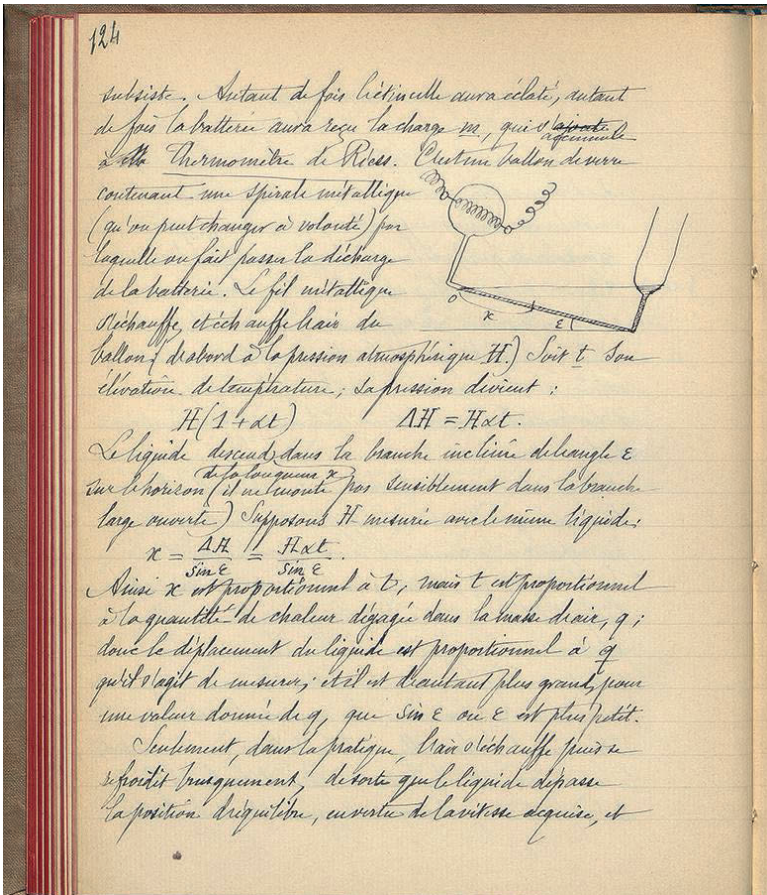 124
subsiste. Autant de fois l'étincelle aura éclaté, autant
de fois la batterie aura reçu la charge m, qui s'ajoute
accumule
à Thermomètre de Riess. C'est une ballon de verre
contenant une spirale métallique
(qu'on peut changer à volonté) par
laquelle on fait passer la décharge
de la batterie. Le fil métallique
s'échauffe, et échauffe l'air du
O x ε
ballon (d'abord à la pression atmosphérique H.) Soit t son
élévation de température; sa pression devient :
H(1+αt) ΔH = Hαt.
Le liquide descend dans la branche inclinée de l'angle ε
de la longueur x
sur l'horizon (il ne monte pas sensiblement dans la branche
large ouverte) Supposons H mesurée avec le même liquide:
x = ΔH / sin ε = Hαt / sin ε.
Ainsi x est proportionnel à t, mais t est proportionnel
à la quantité de chaleur dégagée dans la masse d'air, q ;
donc le déplacement du liquide est proportionnel à q
qu'il s'agit de mesurer; et il est d'autant plus grand, pour
une valeur donnée de q, que sin ε ou ε est plus petit.
Seulement, dans la pratique, l'air s'échauffe puis se
refroidit brusquement, de sorte que le liquide dépasse
la position d'équilibre, en vertu de la vitesse acquise, et